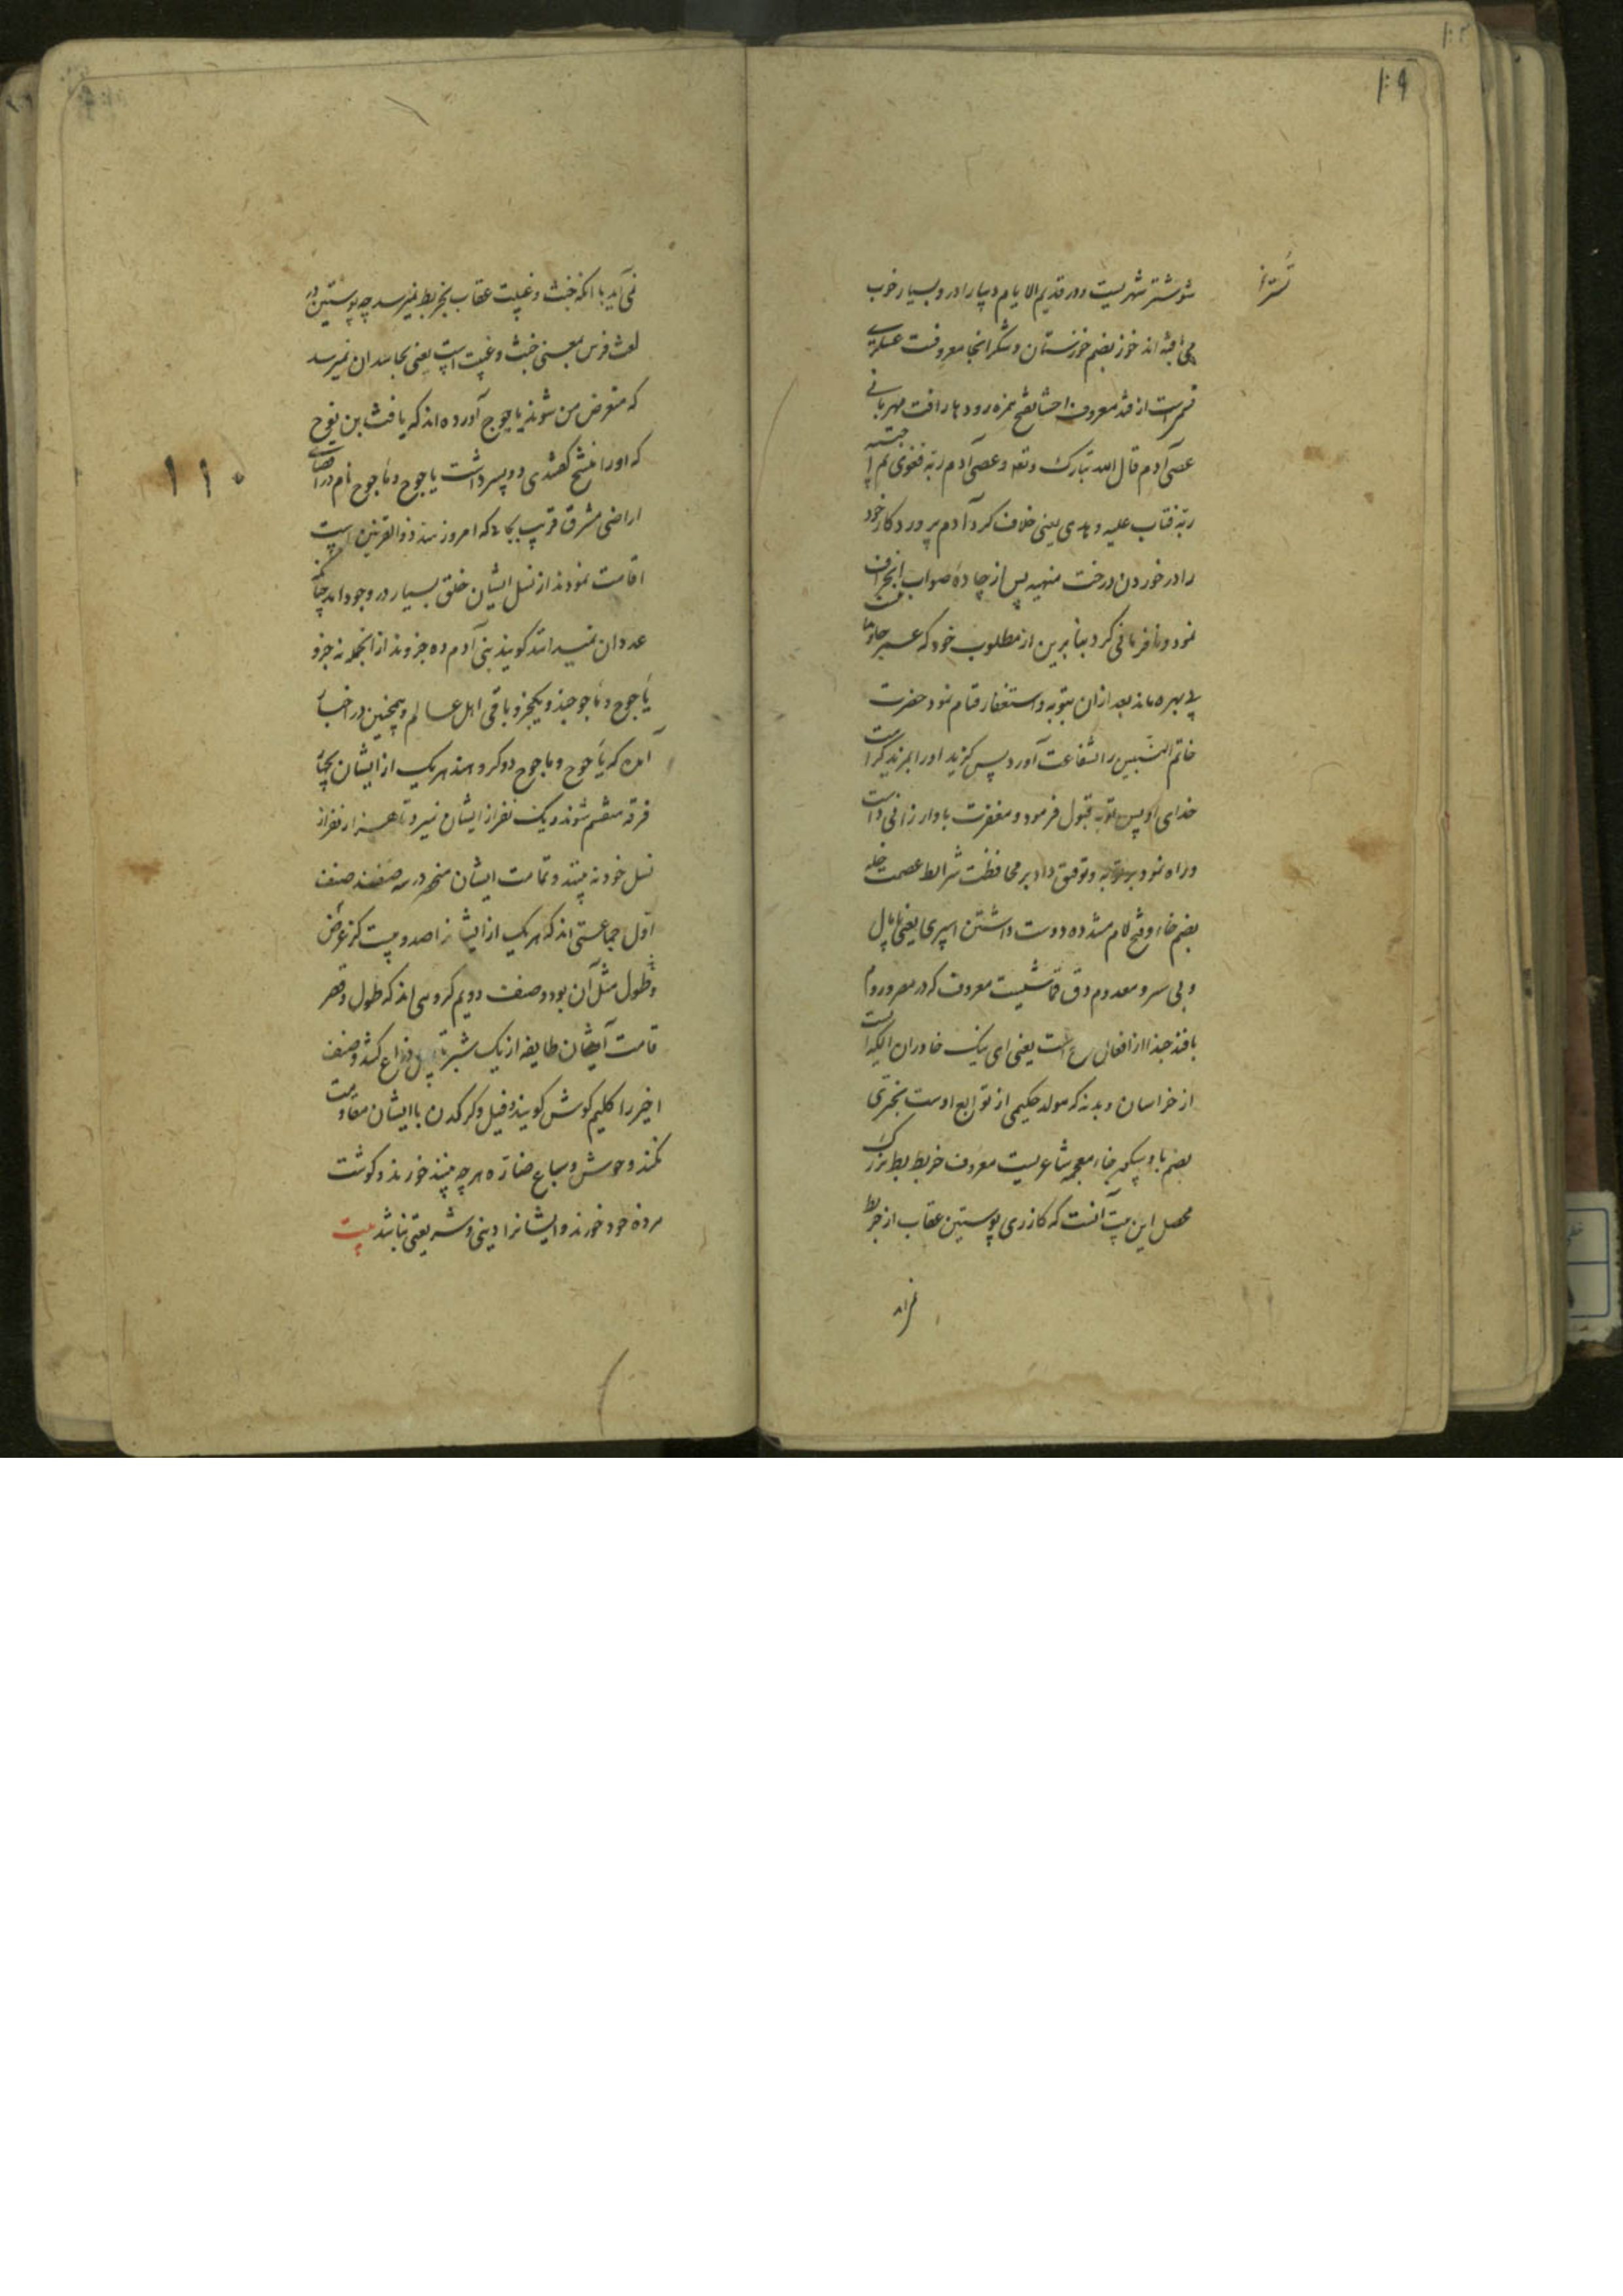 شوشتر شهریست و در قدیم الایام دیبا را در و بسیار خوب
می بافته اند خوز بضم خوزستان و شکر انجا معروفست عسکری
قسمیست از قند معروف احشا بفتح همزه رودها رافت مهربانی
عصی آدم قال الله تبارک و تعه و عصی آدم ربه فغوی ثم اجتبیه
ربه فتاب علیه و هدی یعنی خلاف کرد آدم پروردکار خود
را در خوردن درخت منهیه پس از جادهٔ صواب انحراف
نمود و نافرمانی کرد بنا برین از مطلوب خود که عمر جاو
بی بهره ماند بعد ازان بتوبه و استغفار قیام نمود حضرت
خاتم النبیین را شفاعت آورد پس کزید او را
خدای او پس توبه قبول فرمود و مغفرت باو ارزانی داشت
و راه نمود بر توبه و توفیق داد بر محافظت شرایط عصمت خله
بضم خاء و فتح لام مشدده دوست داشتن اسپری یعنی
و بی سر و معدوم دق قماشیست معروف که در مصر و روم
بافند حبذا از افعال مدح است یعنی ای نیک خاوران
از خراسان و بدنه که مولد حکیمی از توابع اوست بختری
بضم با و خاء معجمه شاعریست معروف خربط بط بزرک
محصل این بیت آنست که کازری پوستین عقاب از خربط
نمی آید با انکه خبث و غیبت عقاب بخربط نمیرسد چه پوستین در
لغت فرس بمعنی خبث و غیبت است یعنی بحاسدان نمیرسد
که متعرض من شوند یاجوج آورده اند که یافث بن نوح
که او را منشج کفتندی دو پسر داشت یاجوج و ماجوج نام در اقصای
اراضی مشرق قریب بجایی که امروز سد ذوالقرنین است
اقامت نمودند از نسل ایشان خلق بسیار در وجود امد چنانکه
عدد ان نمیدانند کویند بنی آدم ده جزوند از انجمله نه جزو
یاجوج و ماجوجند و یکجزو باقی اهل عالم و همچنین در اخبار
آمده که یاجوج و ماجوج دو کروهند هر یک از ایشان بچهار
فرقه منقسم شوند و یک نفر از ایشان نمیرد تا هزار نفر از
نسل خود نه بیند و تمامت ایشان منحصر در سه صنفند صنف
اول جماعتی اند که هر یک از ایشانرا صد و بیست کز عرض
و طول مثل آن بود و صنف دویم کروهی اند که طول و قصر
قامت ایشان طایفه از یک شبر تا ذراع کشد و صنف
اخیر را کلیم کوش کویند و فیل و کرکدن با ایشان مقاومت
نکنند و حوش و سباع هر چه بینند خورند و کوشت
مرده خود خورند و ایشانرا دینی و شریعتی نباشد بیت
۱۱۰